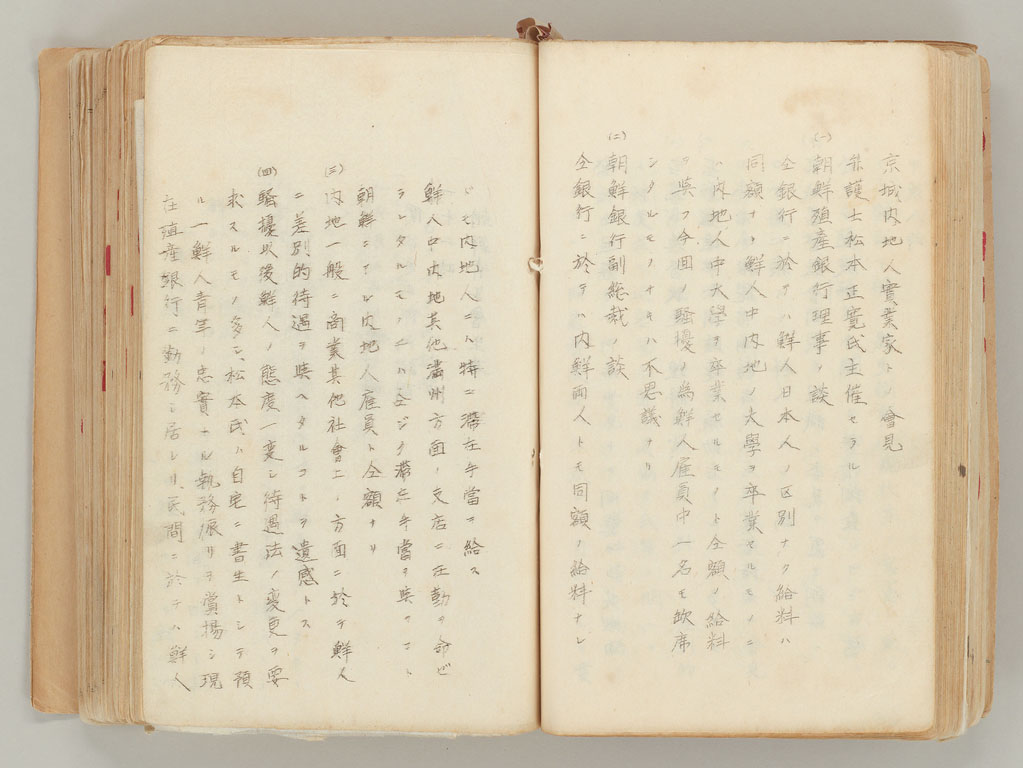 京城内地人實業家トノ會見
弁護士松本正寛氏主催セラル
(一)朝鮮殖産銀行理事ノ談
仝銀行ニ於テハ鮮人日本人ノ区別ナク給料ハ
同額ナリ鮮人中内地ノ大學ヲ卒業セルモノニ
ハ内地人中大學ヲ卒業セルモノト仝額ノ給料
ヲ與フ今回ノ騒擾ノ為鮮人雇員中一名モ欧席
シタルモノナキハ不思議ナリ
(二)朝鮮銀行副総裁ノ談
仝銀行ニ於テハ内鮮両人トモ同額ノ給料ナレ
ドモ内地人ニハ特ニ滞在手當ヲ給ス
鮮人中内地其他満州方面ノ支店ニ在勤ヲ命ビ
ラレタルモノニハ仝ジク滞在手當ヲ與フコト
朝鮮ニテノ内地人雇員ト仝額ナリ
(三)内地一般ニ商業其他社會上ノ方面ニ於テ鮮人
ニ差別的待遇ヲ與ヘタルコトヲ遺感トス
(四)騒擾以後鮮人ノ態度一変シ待遇法ノ変更ヲ要
求スルモノ多シ、松本氏ハ自宅ニ書生トシテ預
ル一鮮人青年ノ忠實ナル執務振リヲ賞揚シ現
在殖産銀行ニ勤務シ居レリ民間ニ於テハ鮮人